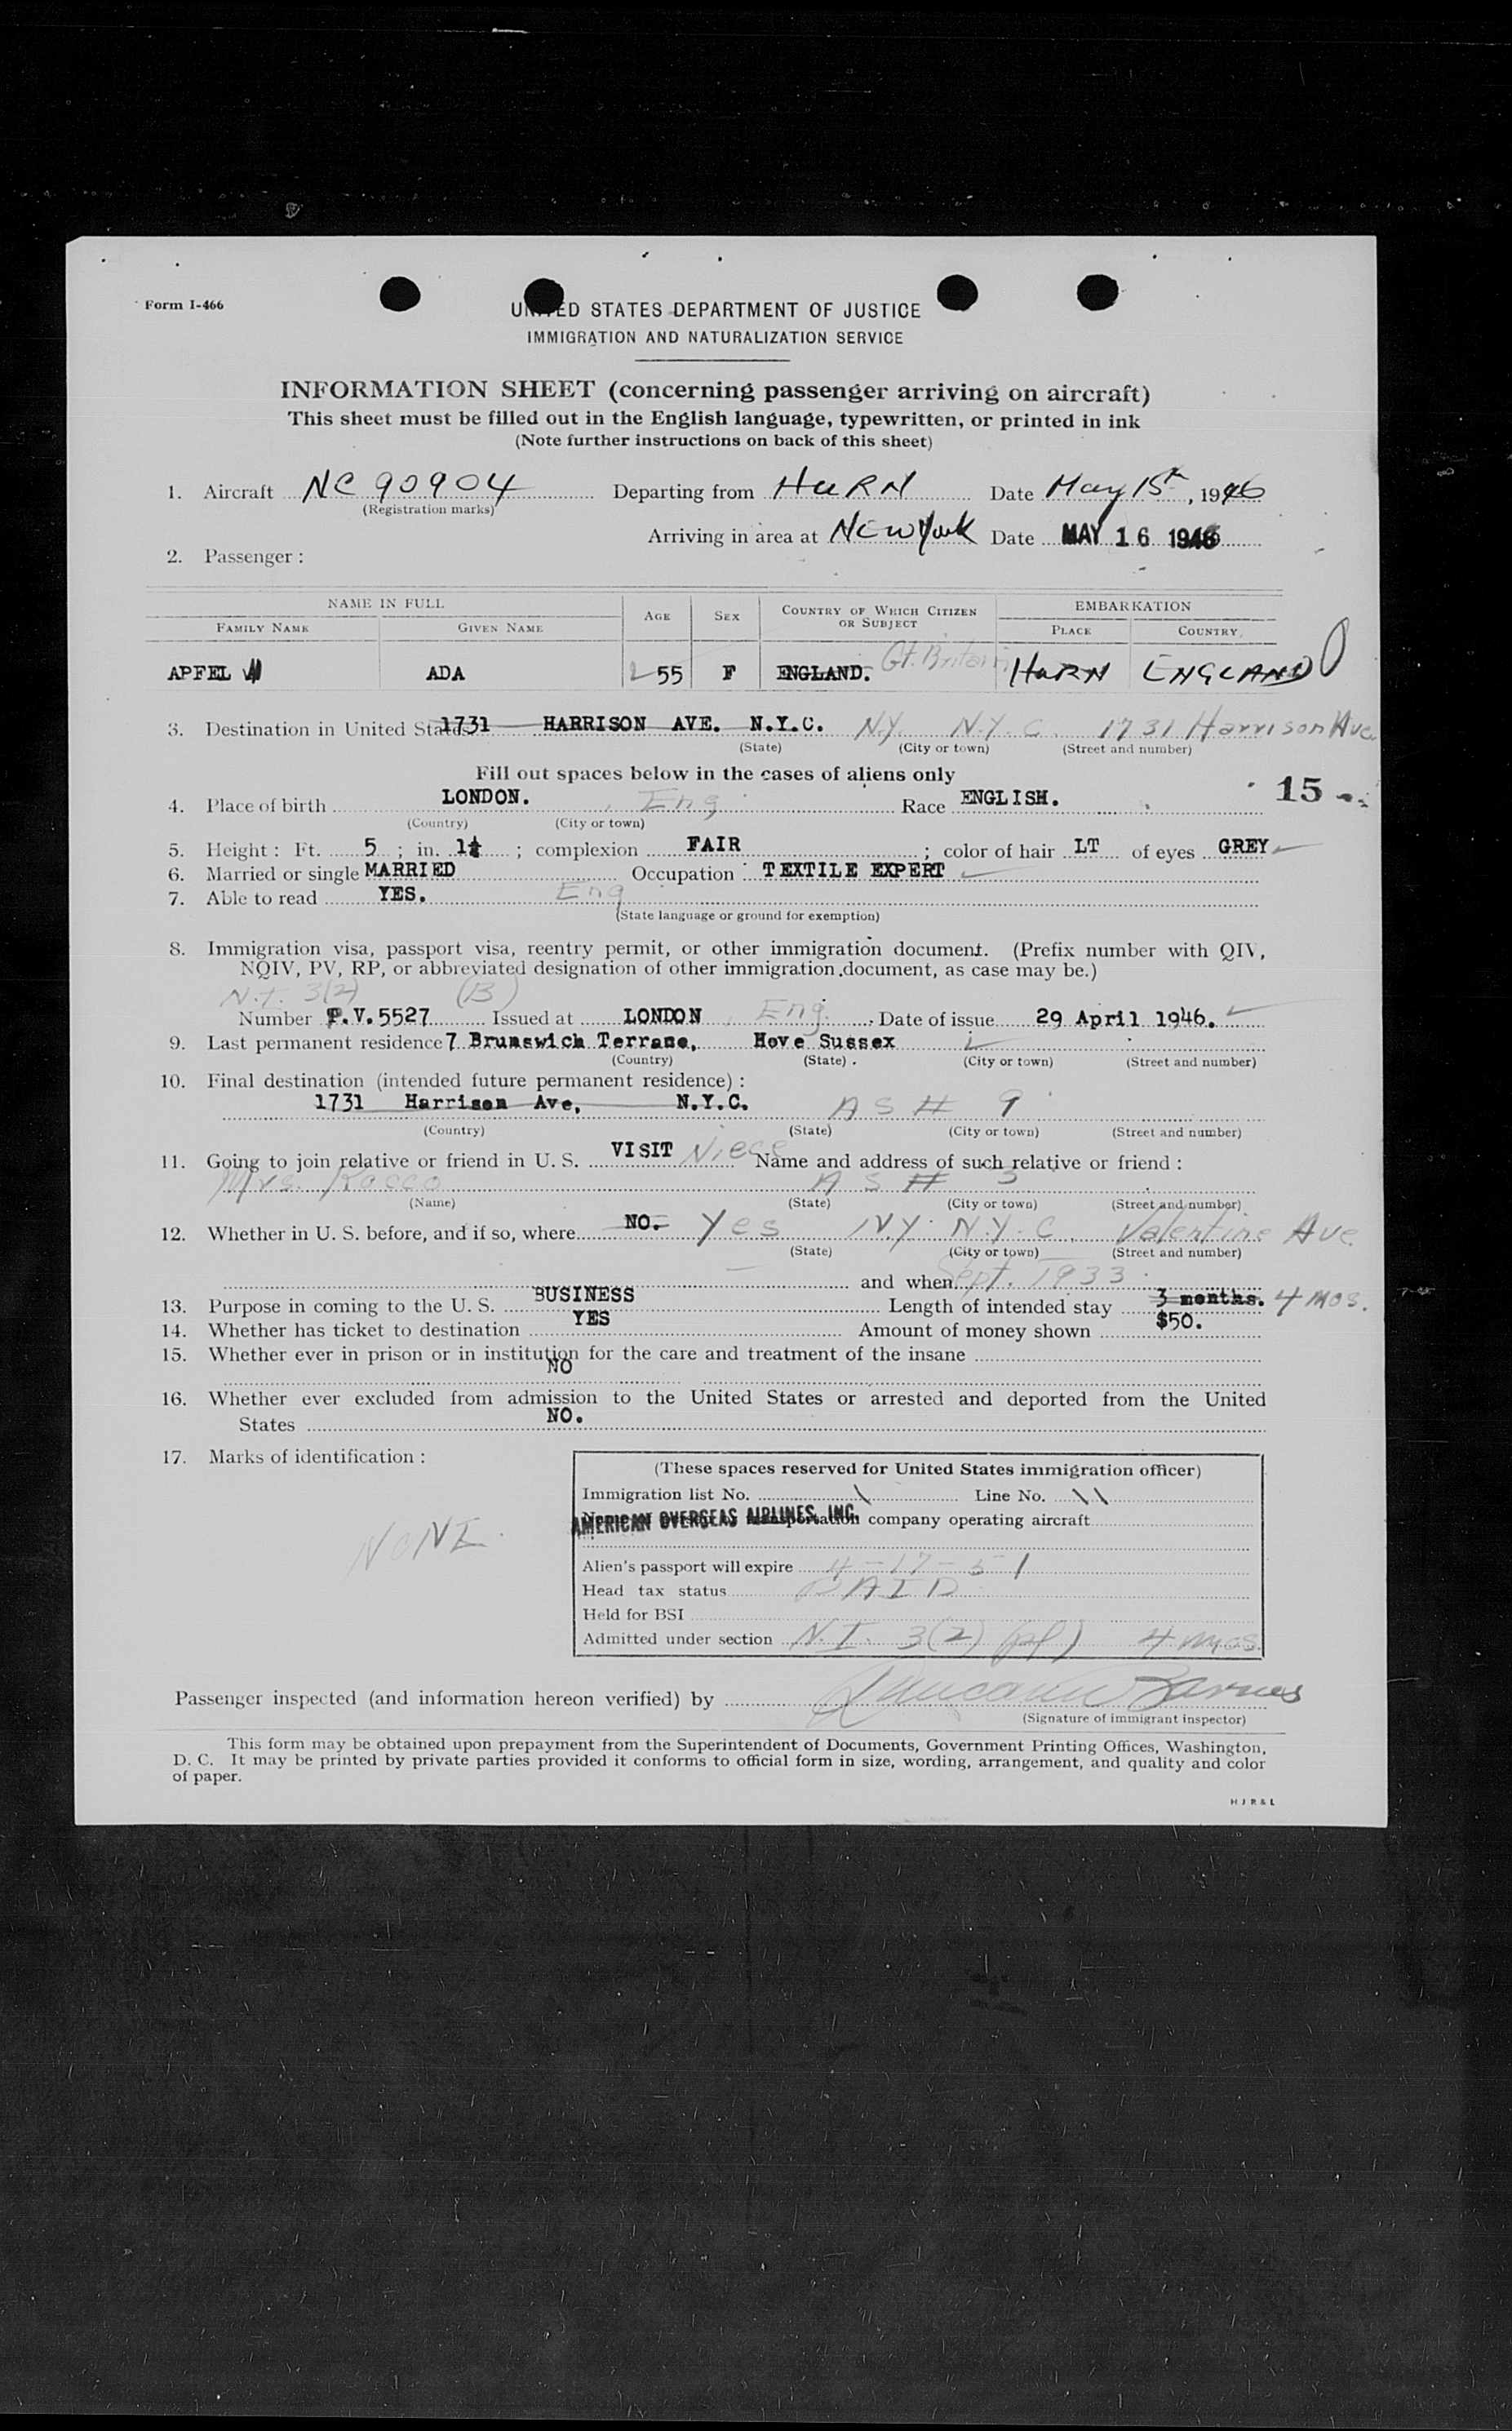 Form I-466
UNITED STATES DEPARTMENT OF JUSTICE
IMMIGRATION AND NATURALIZATION SERVICE
INFORMATION SHEET (concerning passenger arriving on aircraft)
This sheet must be filled out in the English language, typewritten, or printed in ink
(Note further instructions on back of this sheet)
1. Aircraft NC 90904 Departing from HURN Date May 15th, 1946
(Registration marks)
Arriving in area at New York Date MAY 16 1946
2. Passenger:
NAME IN FULL AGE SEX COUNTRY OF WHICH CITIZEN OR SUBJECT EMBARKATION
FAMILY NAME GIVEN NAME PLACE COUNTRY
APFEL ADA 55 F ENGLAND. Gt. Britain HURN ENGLAND
3. Destination in United States 1731 HARRISON AVE. N.Y.C. N.Y. N.Y.C. 1731 Harrison Ave.
(State) (City or town) (Street and number)
Fill out spaces below in the cases of aliens only
15
4. Place of birth LONDON. Eng Race ENGLISH.
(Country) (City or town)
5. Height: Ft. 5 ; in. 1½ ; complexion FAIR ; color of hair LT of eyes GREY
6. Married or single MARRIED Occupation TEXTILE EXPERT
7. Able to read YES. Eng
(State language or ground for exemption)
8. Immigration visa, passport visa, reentry permit, or other immigration document. (Prefix number with QIV,
NQIV, PV, RP, or abbreviated designation of other immigration document, as case may be.)
N.I. 3(2) (B)
Number P.V. 5527 Issued at LONDON Eng. Date of issue 29 April 1946.
9. Last permanent residence 7 Brunswick Terrane, Hove Sussex
(Country) (State) (City or town) (Street and number)
10. Final destination (intended future permanent residence):
1731 Harrison Ave, N.Y.C. AS # 9
(Country) (State) (City or town) (Street and number)
11. Going to join relative or friend in U. S. VISIT Niece Name and address of such relative or friend:
Mrs. Rocco AS # 3
(Name) (State) (City or town) (Street and number)
12. Whether in U. S. before, and if so, where NO. Yes N.Y. N.Y.C. Valentine Ave
(State) (City or town) (Street and number)
and when Sept. 1933
13. Purpose in coming to the U. S. BUSINESS Length of intended stay 3 months. 4 mos.
14. Whether has ticket to destination YES Amount of money shown $50.
15. Whether ever in prison or in institution for the care and treatment of the insane
NO
16. Whether ever excluded from admission to the United States or arrested and deported from the United
States NO.
17. Marks of identification:
NONE
(These spaces reserved for United States immigration officer)
Immigration list No. 1 Line No. 11
AMERICAN OVERSEAS AIRLINES, INC. transportation company operating aircraft
Alien's passport will expire 4-17-51
Head tax status PAID
Held for BSI
Admitted under section N.I. 3(2) 4 mos.
Passenger inspected (and information hereon verified) by
(Signature of immigrant inspector)
This form may be obtained upon prepayment from the Superintendent of Documents, Government Printing Offices, Washington,
D. C. It may be printed by private parties provided it conforms to official form in size, wording, arrangement, and quality and color
of paper.
H J R & L